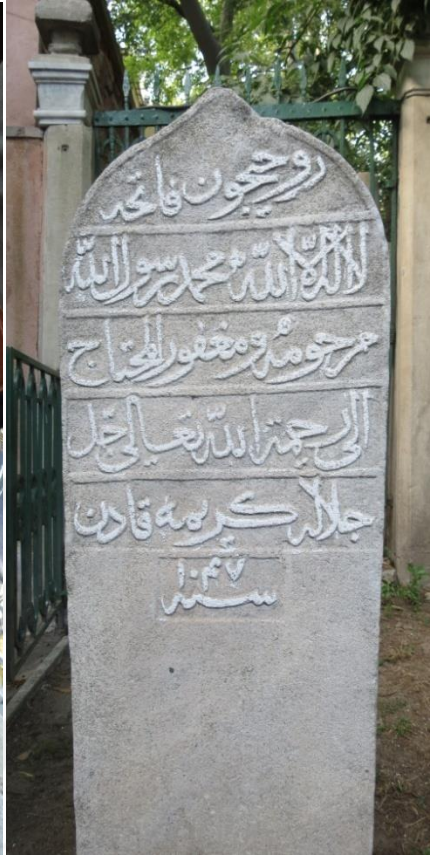 روحیچون فاتحه
لا اله الا الله محمد رسول الله
مرحومه و مغفور المحتاج
الى رحمة الله تعالى جل
جلاله كريمه قادن
سنه ۱۰۴۷